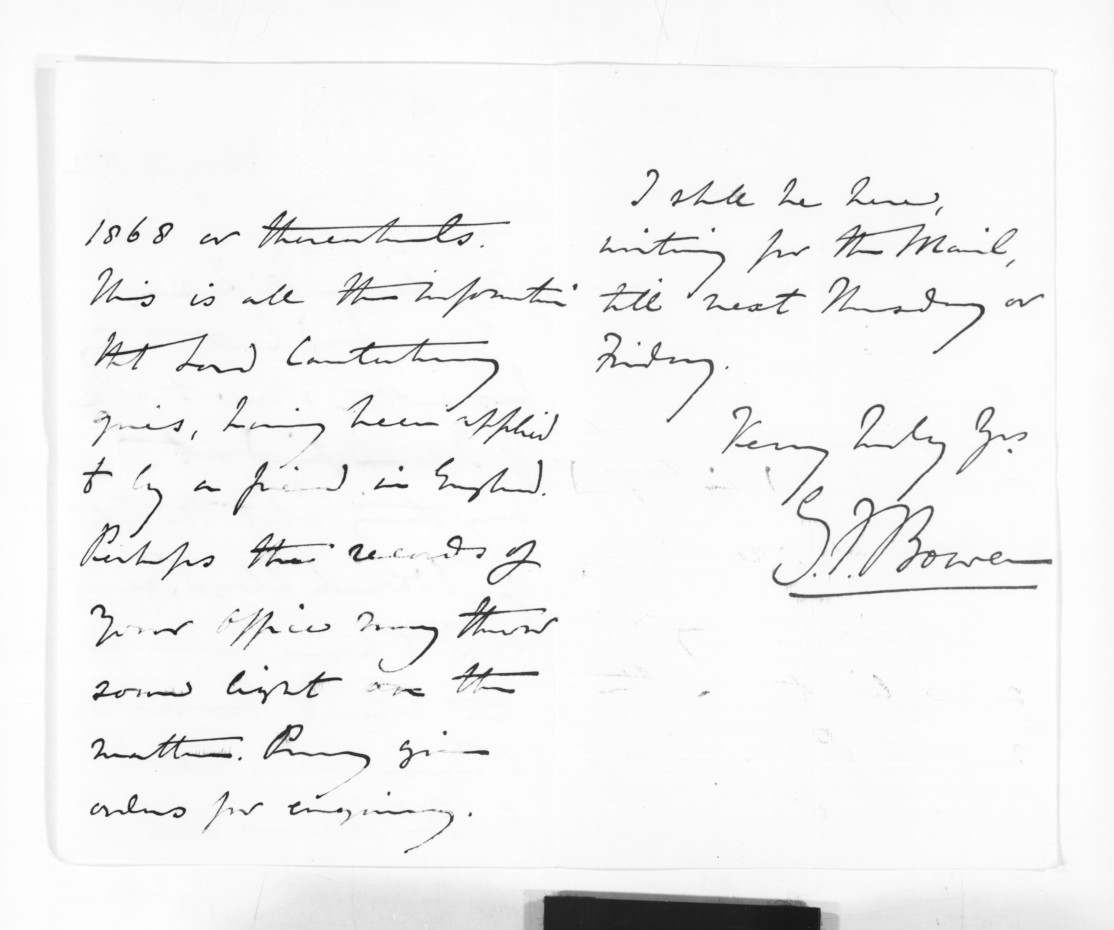 1868 or thereabouts.
This is all the information
tht Lord Canterbury
gives, having been applied
to by a friend in England.
Perhaps the records of
your office may throw
some light on the
matter. Pray give
orders for enquiry.
I shll be here,
writing for the Mail,
till next Thursday or
Friday.
Very truly Yrs
G. F. Bowen